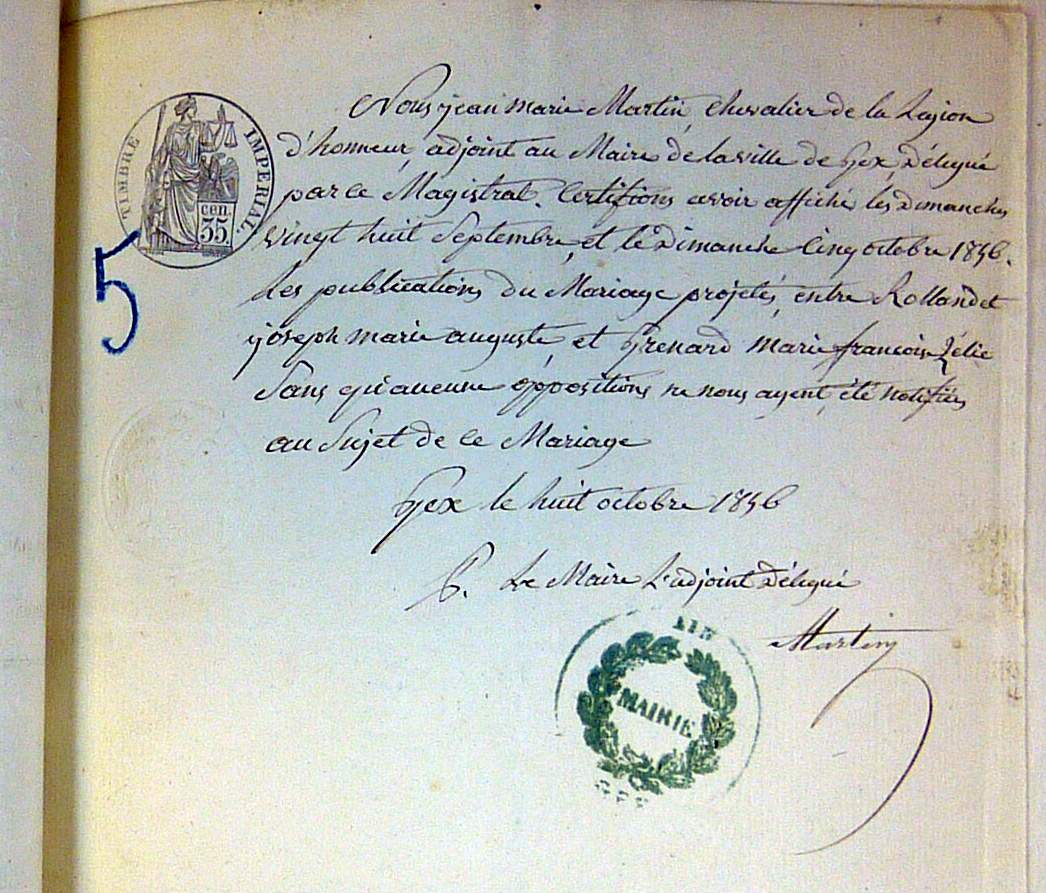 TIMBRE IMPERIAL
cen.
35
5
Nous jean marie Martin, Chevalier de la Legion
d'honneur, adjoint au Maire de la ville de Gex, Délégué
par ce Magistrat. Certifions avoir affiché les Dimanches
vingt huit Septembre, et le Dimanche Cinq octobre 1856.
les publications du Mariage projetés, entre Rolland et
joseph marie auguste, et Grenard marie françoise Zélie
Sans qu'aucune oppositions ne nous ayent été notifiées
au Sujet de ce Mariage
Gex le huit octobre 1856
P. Le Maire L'adjoint Délégué
Martin
AIN
MAIRIE
GEX